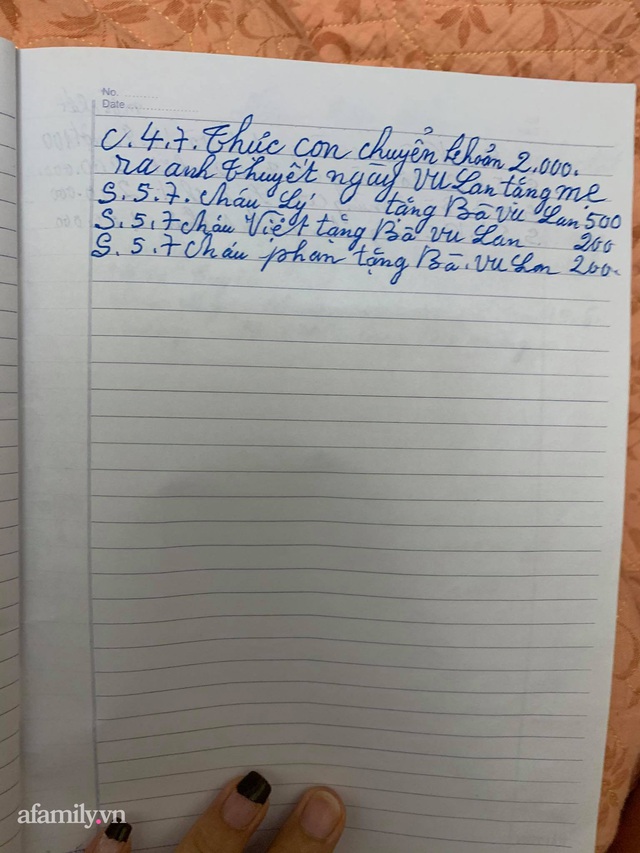 No.
Date
C.4.7. Thức con chuyển khoản 2.000.
ra anh Thuyết ngay Vu Lan tăng mẹ
S.5.7. cháu Lý tăng Bà Vu Lan 500
S.5.7 cháu Việt tặng Bà Vu Lan 200
S.5.7 cháu phan tặng Bà. Vu Lan 200.
afamily.vn